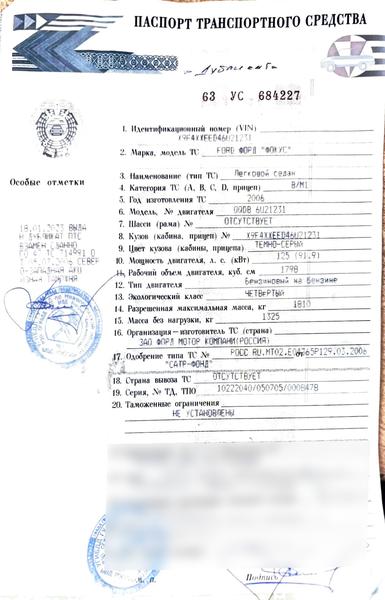 ПАСПОРТ ТРАНСПОРТНОГО СРЕДСТВА
Дубликат
63 УС 684227
1. Идентификационный номер (VIN)
X9F4XXEED46U21231
2. Марка, модель ТС FORD ФОРД "ФОКУС"
3. Наименование (тип ТС) Легковой седан
4. Категория ТС (A, B, C, D, прицеп) B/M1
5. Год изготовления ТС 2006
6. Модель, № двигателя QQDB 6U21231
7. Шасси (рама) № ОТСУТСТВУЕТ
8. Кузов (кабина, прицеп) № X9F4XXEED46U21231
9. Цвет кузова (кабины, прицепа) ТЕМНО-СЕРЫЙ
10. Мощность двигателя, л. с. (кВт) 125 (91.9)
11. Рабочий объем двигателя, куб. см 1798
12. Тип двигателя Бензиновый на бензине
13. Экологический класс ЧЕТВЕРТЫЙ
14. Разрешенная максимальная масса, кг 1810
15. Масса без нагрузки, кг 1325
16. Организация-изготовитель ТС (страна)
ЗАО ФОРД МОТОР КОМПАНИ(РОССИЯ)
17. Одобрение типа ТС № РОСС RU.МТ02.Е04765Р1 от 29.03.2006
"САТР-ФОНД"
18. Страна вывоза ТС ОТСУТСТВУЕТ
19. Серия, № ТД, ТПО 10222040/050705/0008478
20. Таможенные ограничения
НЕ УСТАНОВЛЕНЫ
Особые отметки
18.01.2023 ВЫДА
Н ДУБЛИКАТ ПТС
ВЗАМЕН СДАННО
М. П.
Подпись